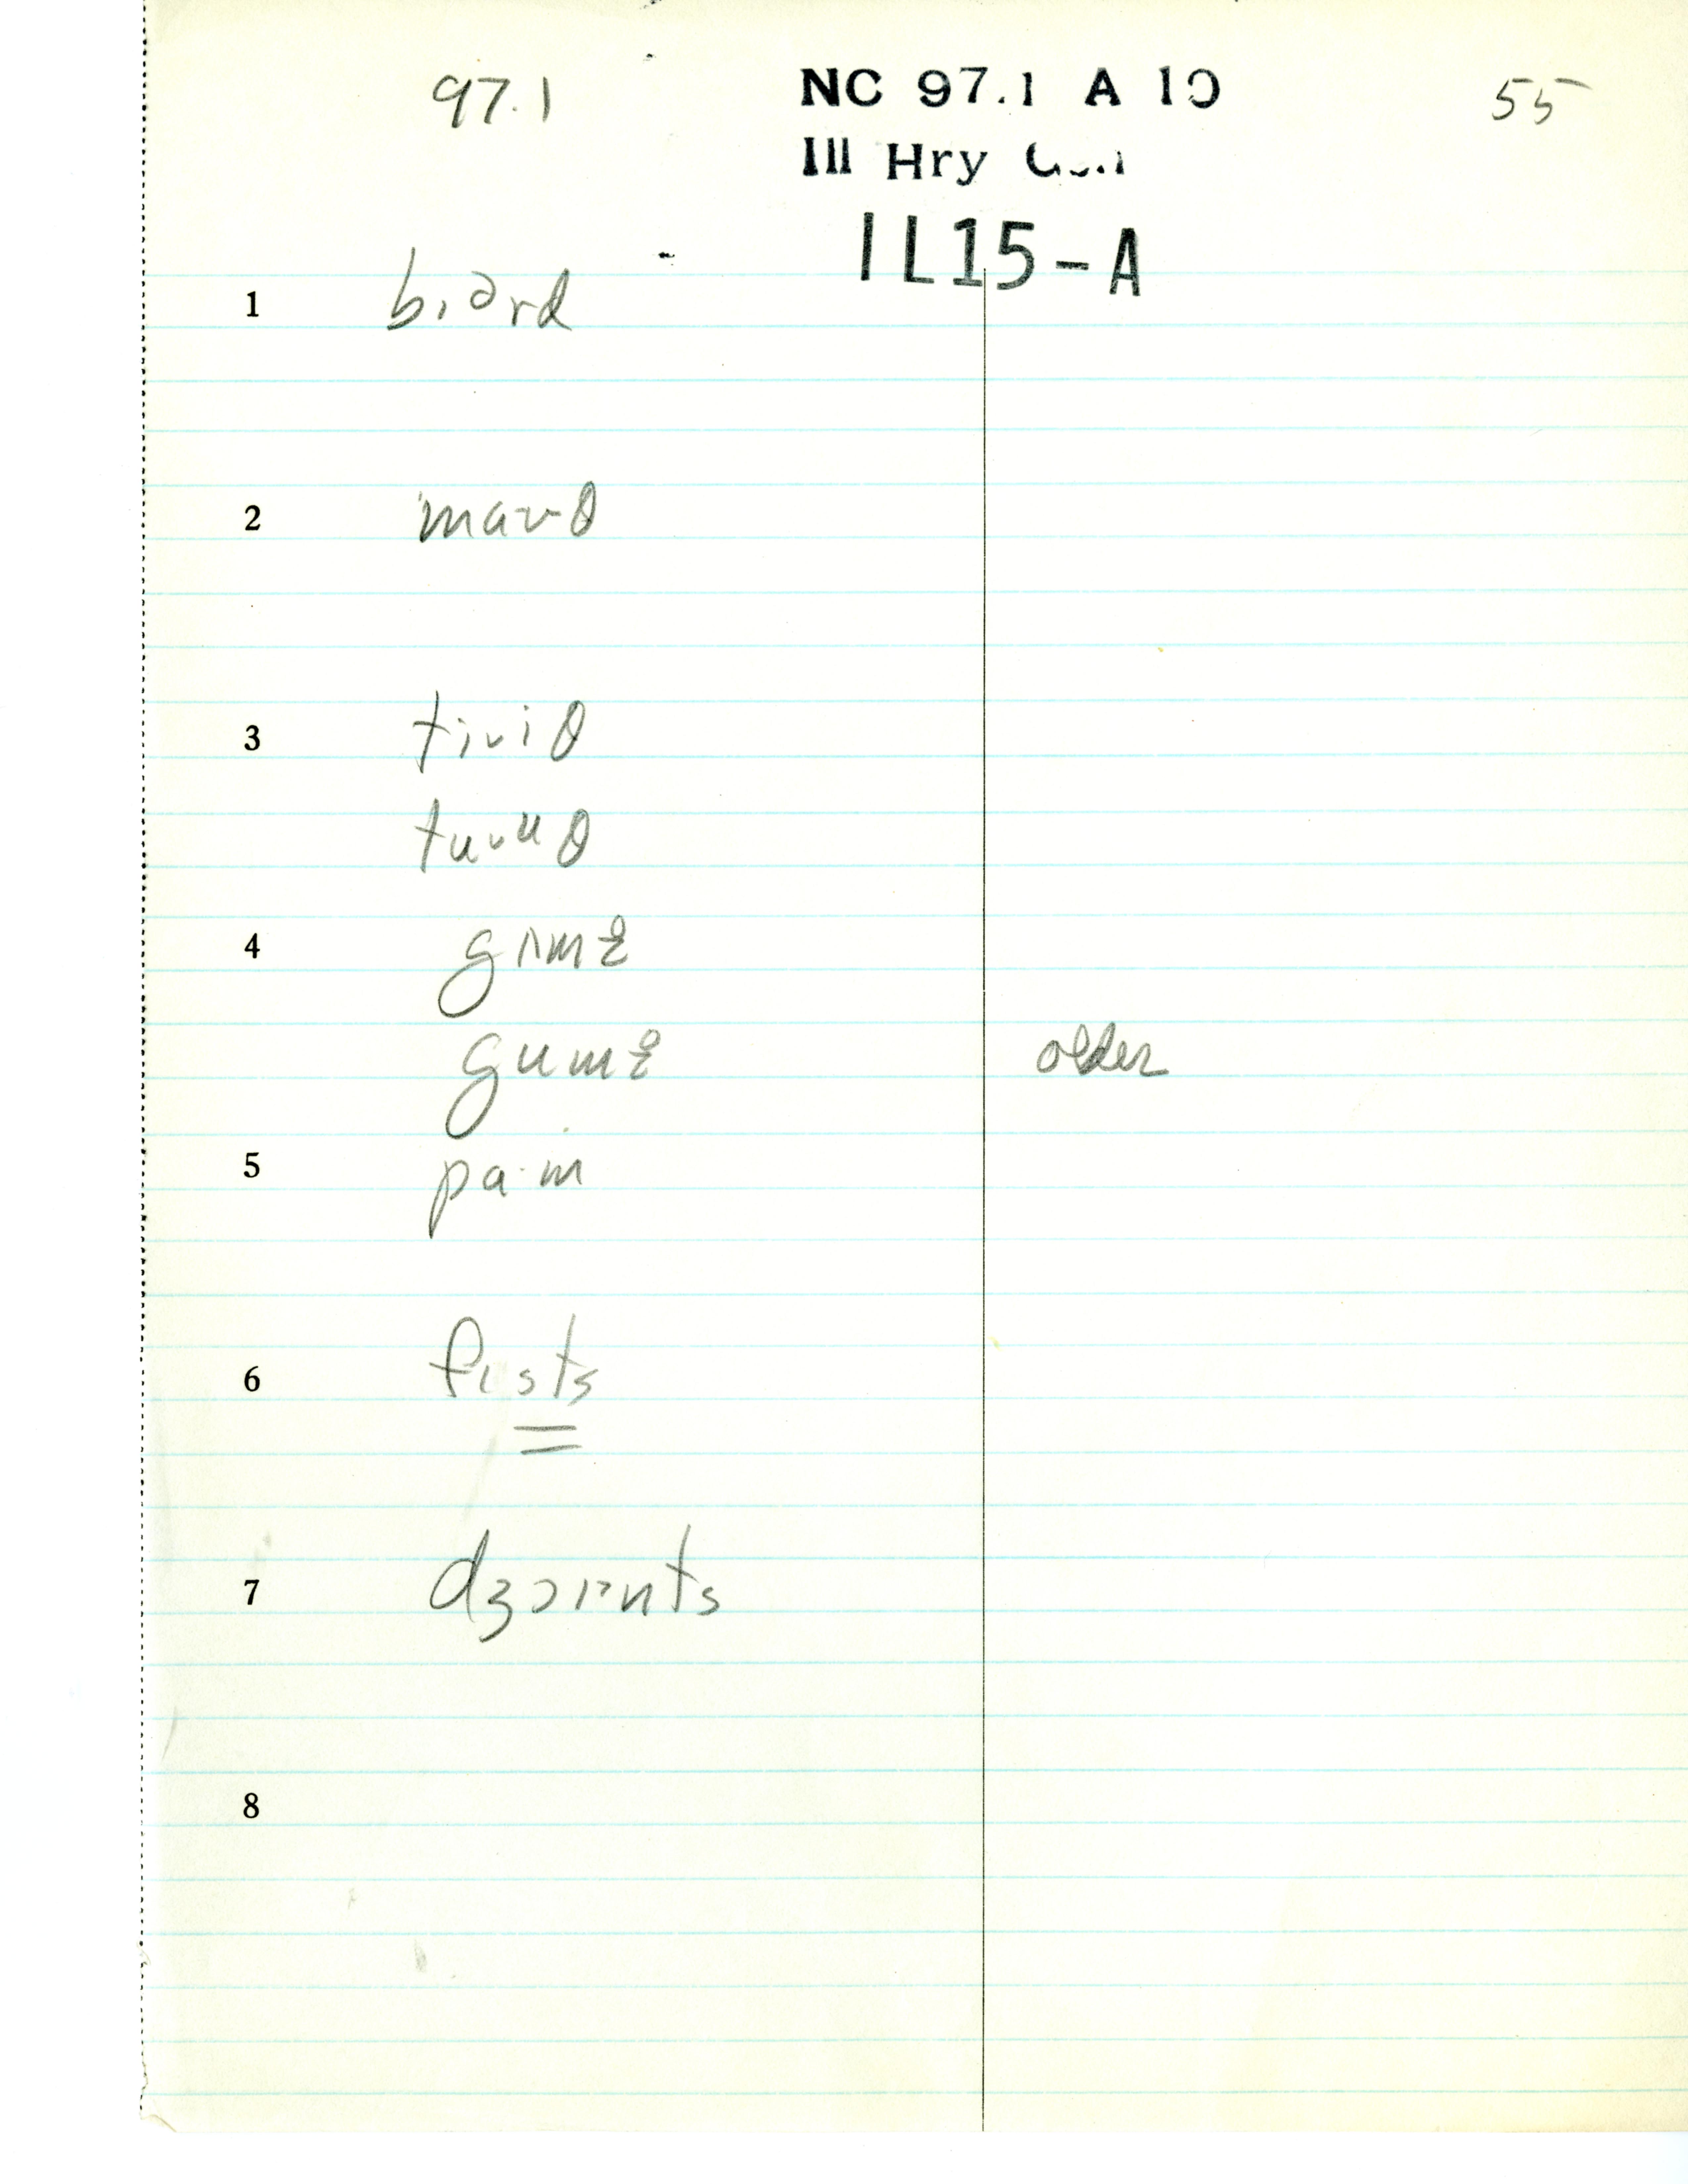 97.1 NC 97.1 A 10 55
Ill Hry
IL15-A
1 bɪərd
2 mauθ
3 tiᵛiθ
tuᵛuθ
4 gʌmz̥
gumz̥ older
5 pa·m
6 fɪsts
7 dʒɔɪᵊnts
8